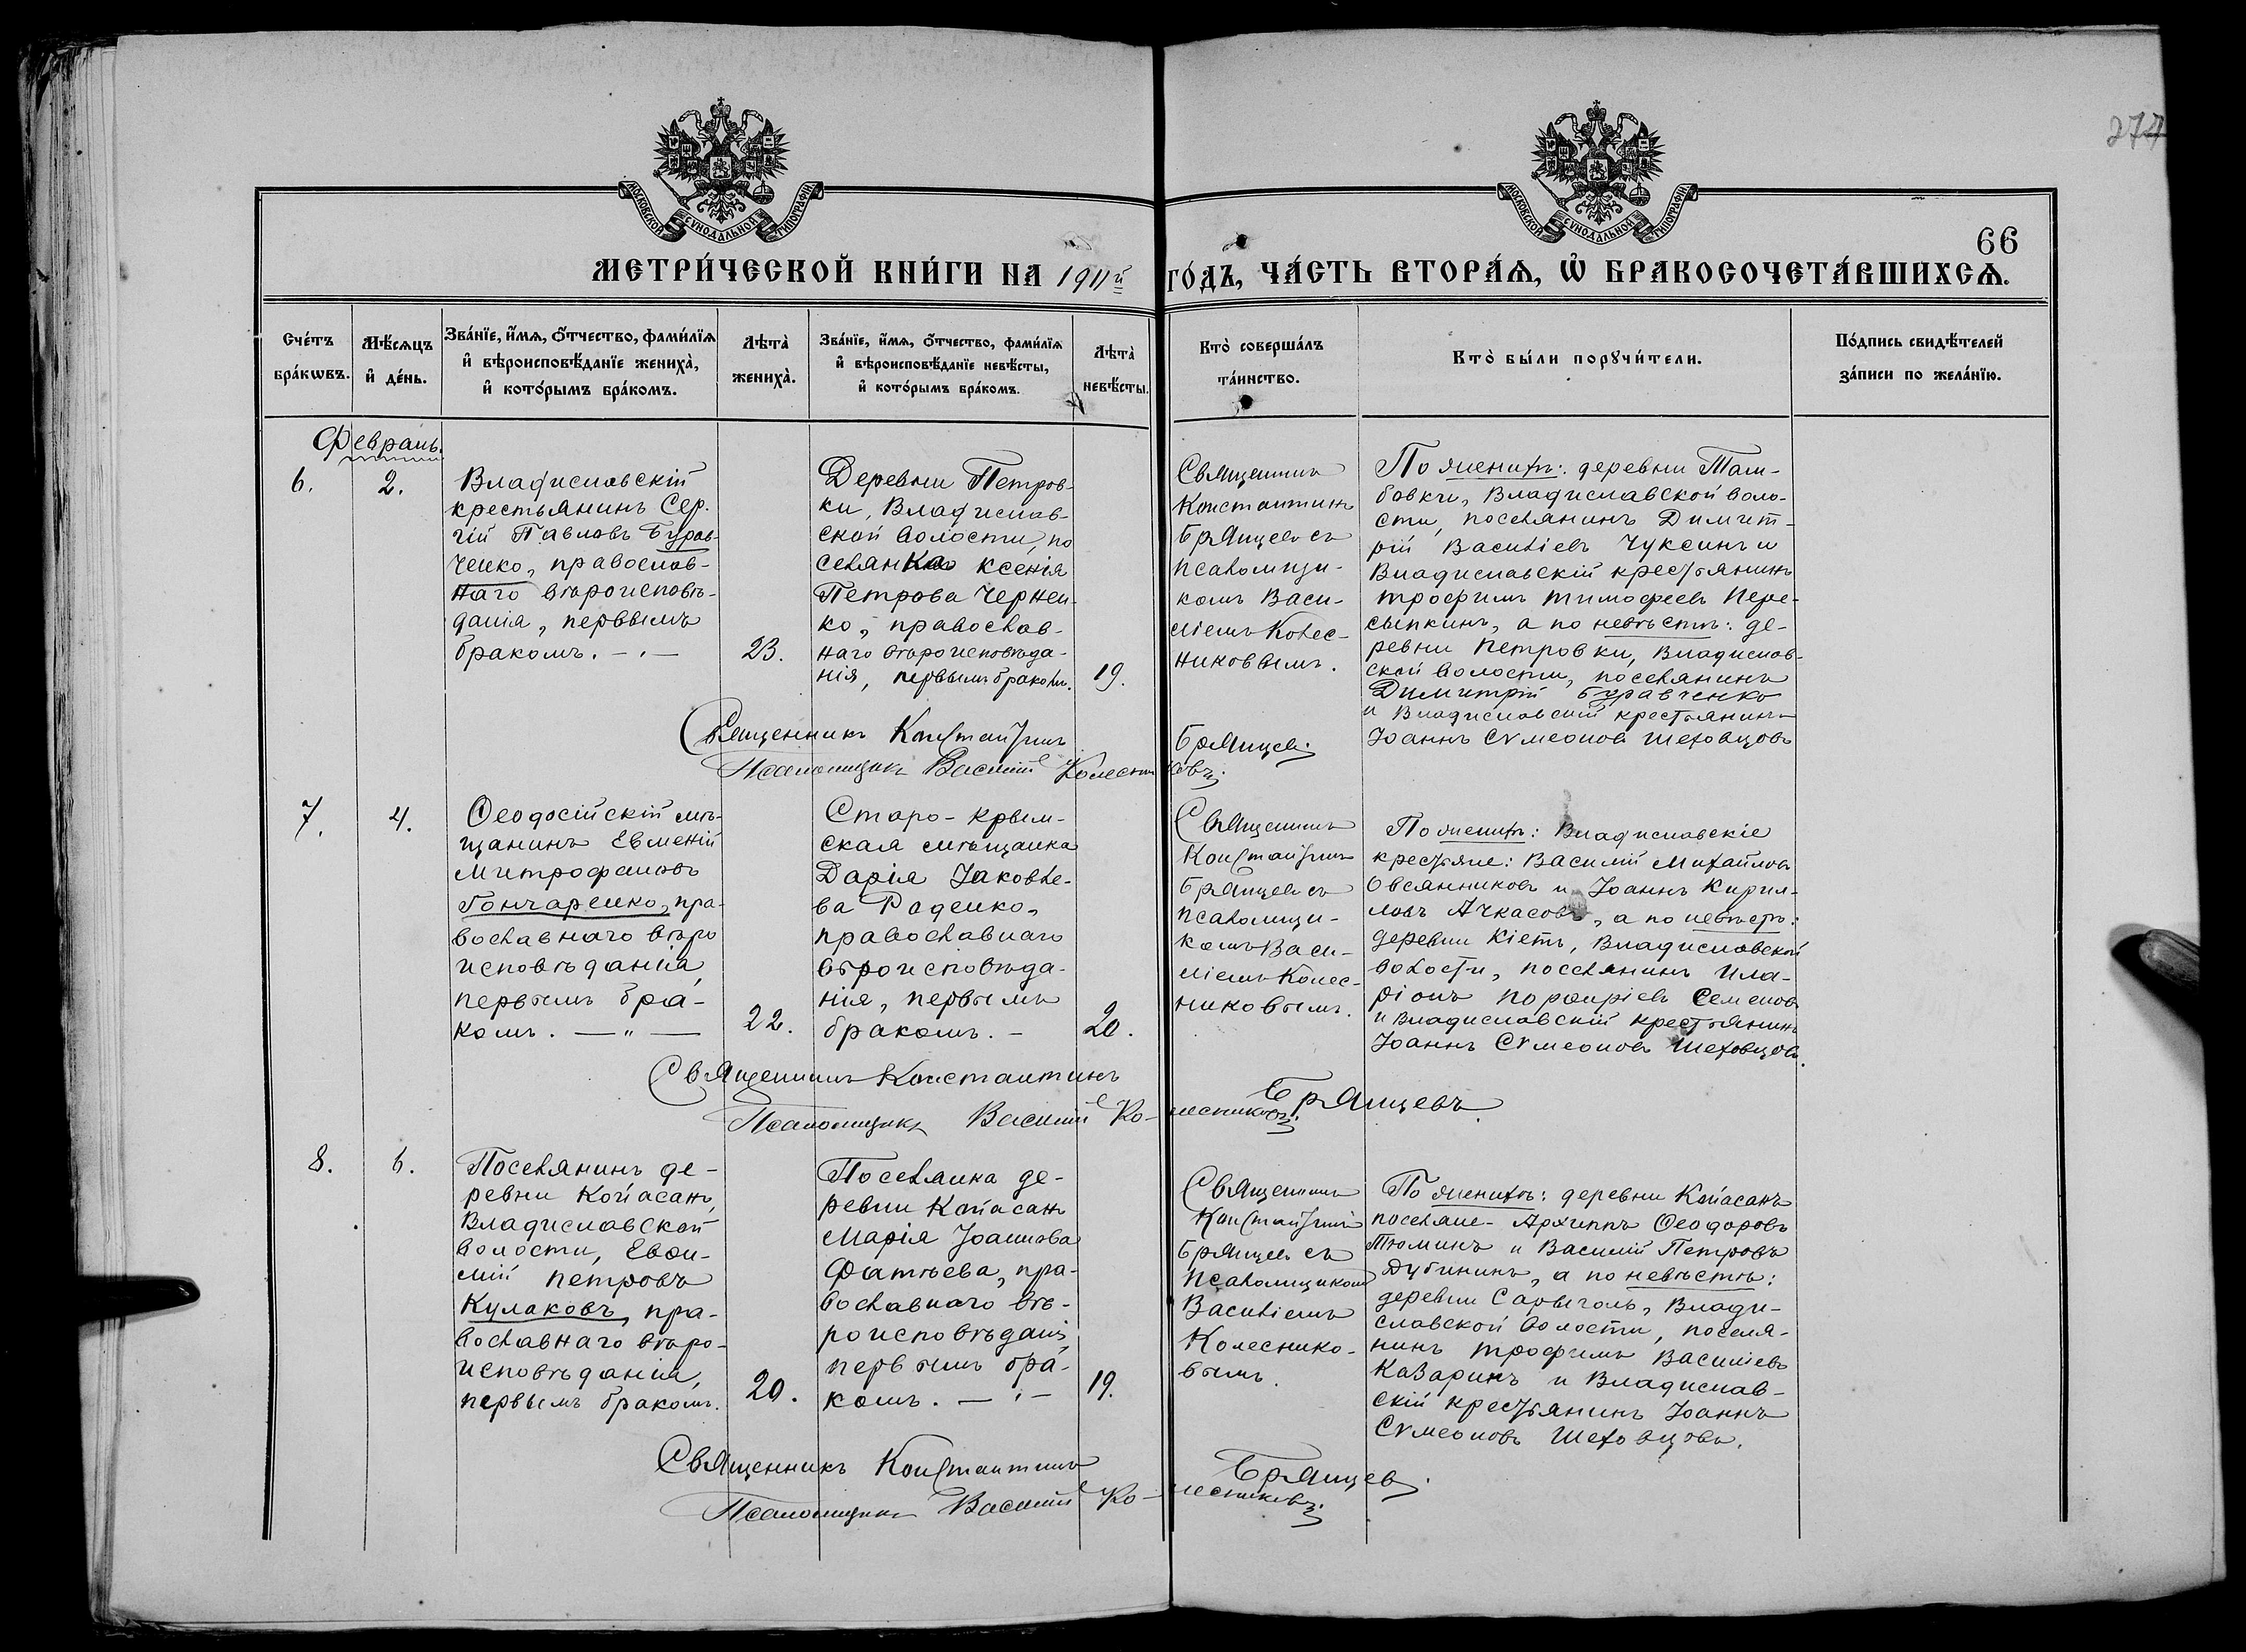 МОСКОВСКОЙ СѴНОДАЛЬНОЙ ТИПОГРАФІИ
МОСКОВСКОЙ СѴНОДАЛЬНОЙ ТИПОГРАФІИ
274
66
МЕТРИ́ЧЕСКОЙ КНИ́ГИ НА 1911й ГО́ДЪ, ЧА́СТЬ ВТОРА́Ѧ, Ѡ҆ БРАКОСОЧЕТА́ВШИХСѦ.
Сче́тъ
бра́кѡвъ.
Мѣ́сѧцъ
и҆ де́нь.
Зва́нїе, и҆́мѧ, ѻ҆́тчество, фамѝлїѧ
и҆ вѣроисповѣ́данїе жениха̀,
и҆ кото́рымъ бра́комъ.
Лѣта̀
жениха̀.
Зва́нїе, и҆́мѧ, ѻ҆́тчество, фами́лїѧ
и҆ вѣроисповѣ́данїе невѣ́сты,
и҆ кото́рымъ бра́комъ.
Лѣта̀
невѣ́сты.
Кто̀ соверша́лъ
та́инство.
Кто̀ бы́ли порꙋчи́тели.
По́дпись свидѣ́телей
за́писи по жела́нїю.
Февраль.
6.
2.
Владиславскій
крестьянинъ Сер-
гій Павловъ Бурав-
ченко, православ-
наго вѣроисповѣ-
данія, первымъ
бракомъ. - " -
23.
Деревни Петров-
ки, Владислав-
ской волости, по
селянка Ксенія
Петрова Чернен-
ко, православ-
наго вѣроисповѣда-
нія, первымъ бракомъ.
19.
Священникъ
Константинъ
Брянцевъ съ
псаломщи-
комъ Васи-
ліемъ Колес-
никовымъ.
По женихѣ: деревни Там-
бовки, Владиславской воло-
сти, поселянинъ Димит-
рій Василіевъ Чуксинъ и
Владиславскій крестьянинъ
Трофимъ Тимофеевъ Пере-
сыпкинъ, а по невѣстѣ: де-
ревни Петровки, Владислав-
ской волости, поселянинъ
Димитрій Буравченко
и Владиславскій крестьянинъ
Іоаннъ Сѵмеоновъ Шеховцовъ
Священникъ Константинъ Брянцевъ.
Псаломщикъ Василій Колесниковъ.
7.
4.
Ѳеодосійскій мѣ-
щанинъ Евменій
Митрофановъ
Гончаренко, пра-
вославнаго вѣро
исповѣданія,
первымъ бра-
комъ. — " —
22.
Старо-Крым-
ская мѣщанка
Дарія Іаковле-
ва Раденко,
православнаго
вѣроисповѣда-
нія, первымъ
бракомъ. -
20.
Священникъ
Константинъ
Брянцевъ съ
псаломщи-
комъ Васи-
ліемъ Колес-
никовымъ.
По женихѣ: Владиславскіе
крестьяне: Василій Михайловъ
Овсянниковъ и Іоаннъ Кирил-
ловъ Ачкасовъ, а по невѣстѣ:
деревни Кіетъ, Владиславской
волости, поселянинъ Ила-
ріонъ Порфиріевъ Семеновъ
и Владиславскій крестьянинъ
Іоаннъ Сѵмеоновъ Шеховцовъ.
Священникъ Константинъ Брянцевъ.
Псаломщикъ Василій Ко-лесниковъ.
8.
6.
Поселянинъ де-
ревни Койасанъ,
Владиславской
волости, Евѳи-
мій Петровъ
Кулаковъ, пра-
вославнаго вѣро-
исповѣданія,
первымъ бракомъ.
20.
Поселянка де-
ревни Койасанъ
Марія Іоаннова
Фатѣева, пра-
вославнаго вѣ-
роисповѣданія,
первымъ бра-
комъ. — " —
19.
Священникъ
Константинъ
Брянцевъ съ
псаломщикомъ
Василіемъ
Колеснико-
вымъ.
По женихѣ: деревни Койасанъ
поселяне - Архиппъ Ѳеодоровъ
Тюминъ и Василій Петровъ
Дубининъ, а по невѣстѣ:
деревни Сарыголь, Влади-
славской волости, поселя-
нинъ Трофимъ Василіевъ
Казаринъ и Владислав-
скій крестьянинъ Іоаннъ
Сѵмеоновъ Шеховцовъ.
Священникъ Константинъ Брянцев.
Псаломщикъ Василій Ко-лесниковъ.